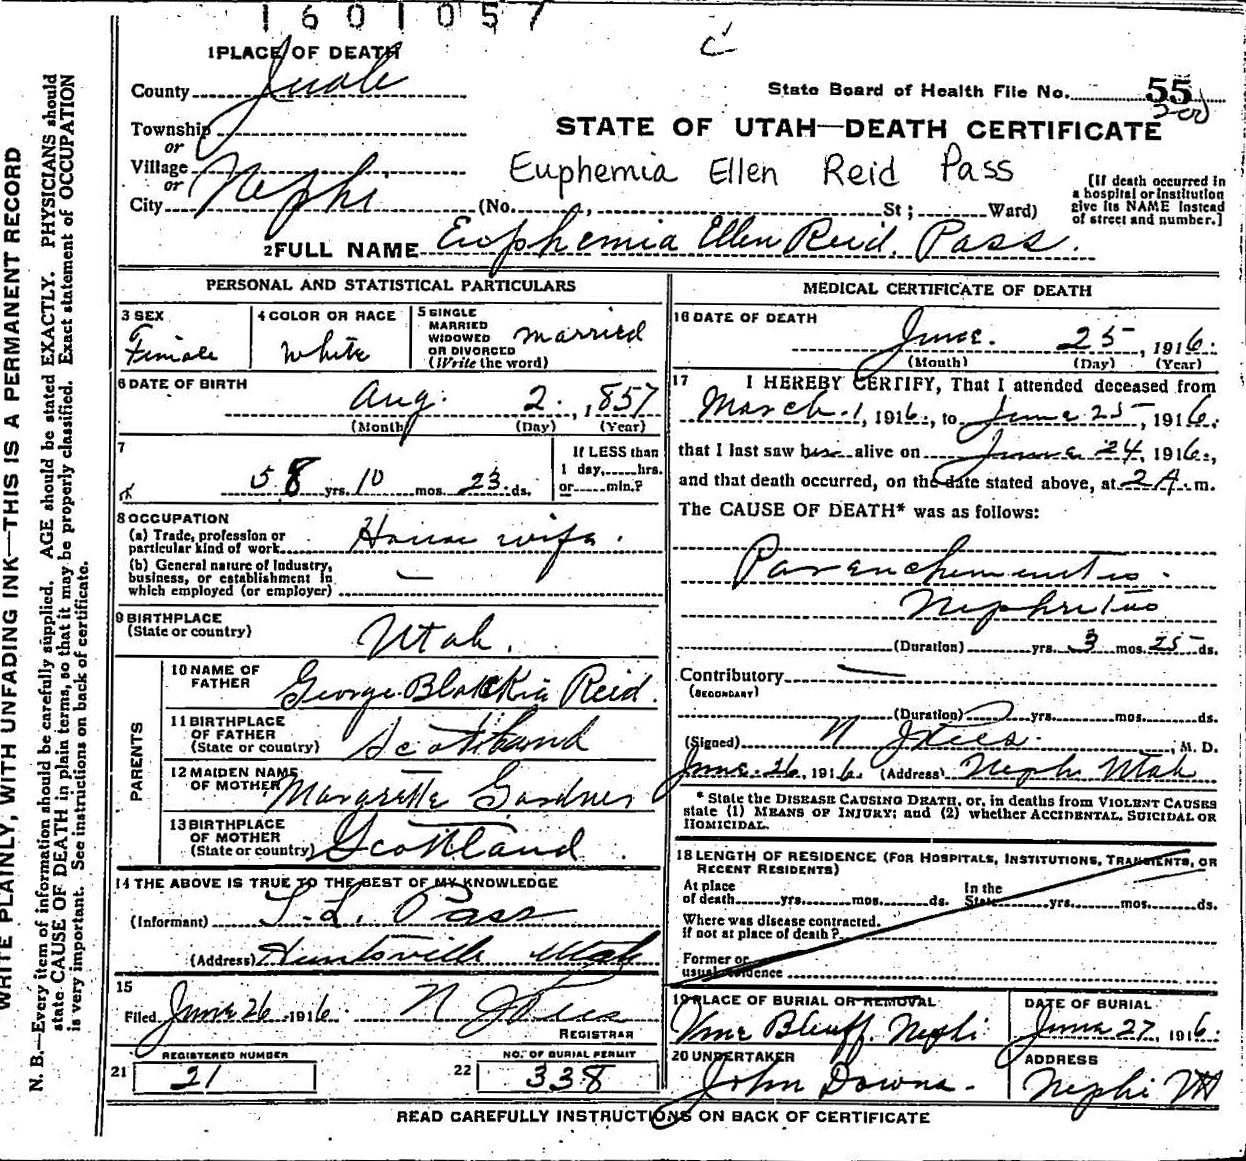 1601057
C
1 PLACE OF DEATH
County Juab
State Board of Health File No. 55
200
Township
or
STATE OF UTAH—DEATH CERTIFICATE
Village
or
Euphemia Ellen Reid Pass
City Nephi (No. , St; Ward)
[If death occurred in
a hospital or institution
give its NAME instead
of street and number.]
2 FULL NAME Euphemia Ellen Reid Pass.
PERSONAL AND STATISTICAL PARTICULARS
3 SEX
Female
4 COLOR OR RACE
White
5 SINGLE
MARRIED
WIDOWED
OR DIVORCED
(Write the word)
married
6 DATE OF BIRTH
Aug. 2, 1857
(Month) (Day) (Year)
7
58 yrs. 10 mos. 23 ds.
If LESS than
1 day, hrs.
or min.?
8 OCCUPATION
(a) Trade, profession or
particular kind of work House wife.
(b) General nature of industry,
business, or establishment in
which employed (or employer) —
9 BIRTHPLACE
(State or country) Utah.
PARENTS
10 NAME OF
FATHER George Reid.
11 BIRTHPLACE
OF FATHER
(State or country) Scotland
12 MAIDEN NAME
OF MOTHER Margrette Gardner
13 BIRTHPLACE
OF MOTHER
(State or country) Scottland
14 THE ABOVE IS TRUE TO THE BEST OF MY KNOWLEDGE
(Informant) T. L. Pass
(Address) Huntsville Utah
15
Filed June 26 1916.
REGISTRAR
REGISTERED NUMBER
21 21
NO. OF BURIAL PERMIT
22 338
MEDICAL CERTIFICATE OF DEATH
16 DATE OF DEATH
June. 25, 1916.
(Month) (Day) (Year)
17 I HEREBY CERTIFY, That I attended deceased from
March 1, 1916, to June 25, 1916,
that I last saw alive on June 24, 1916,
and that death occurred, on the date stated above, at 2 A. m.
The CAUSE OF DEATH* was as follows:
Nephritus
(Duration) yrs. 3 mos. 25 ds.
Contributory —
(SECONDARY)
(Duration) yrs. mos. ds.
(Signed) , M. D.
June 26, 1916. (Address) Nephi Utah
* State the DISEASE CAUSING DEATH, or, in deaths from VIOLENT CAUSES
state (1) MEANS OF INJURY; and (2) whether ACCIDENTAL, SUICIDAL OR
HOMICIDAL.
18 LENGTH OF RESIDENCE (FOR HOSPITALS, INSTITUTIONS, TRANSIENTS, OR
RECENT RESIDENTS)
At place
of death yrs. mos. ds.
In the
State yrs. mos. ds.
Where was disease contracted.
if not at place of death?
Former or
usual residence
19 PLACE OF BURIAL OR REMOVAL
Vine Bluff Nephi
DATE OF BURIAL
June 27, 1916.
20 UNDERTAKER
John Downs.
ADDRESS
Nephi Ut
READ CAREFULLY INSTRUCTIONS ON BACK OF CERTIFICATE
WRITE PLAINLY, WITH UNFADING INK—THIS IS A PERMANENT RECORD
N. B.—Every item of information should be carefully supplied. AGE should be stated EXACTLY. PHYSICIANS should
state CAUSE OF DEATH in plain terms, so that it may be properly classified. Exact statement of OCCUPATION
is very important. See instructions on back of certificate.